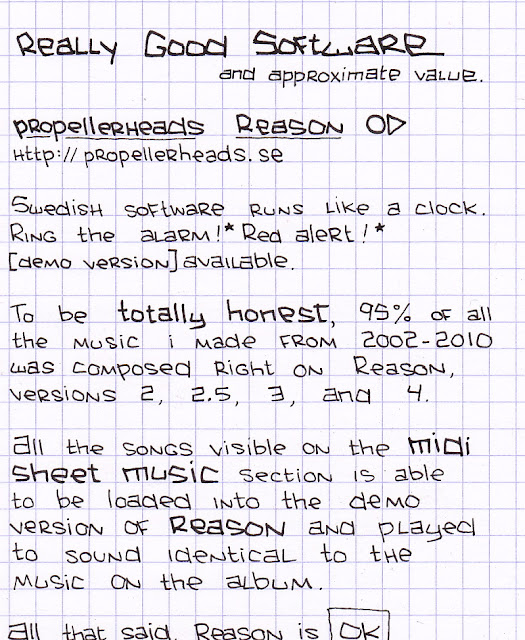 Really Good Software
and approximate value.
propellerheads Reason
Http://propellerheads.se
Swedish software runs like a clock.
Ring the alarm!* Red alert!*
[demo version] available.
To be totally honest, 95% of all
the music i made from 2002-2010
was composed right on Reason,
versions 2, 2.5, 3, and 4.
all the songs visible on the midi
sheet music section is able
to be loaded into the demo
version of Reason and played
to sound identical to the
music on the album.
all that said, Reason is OK